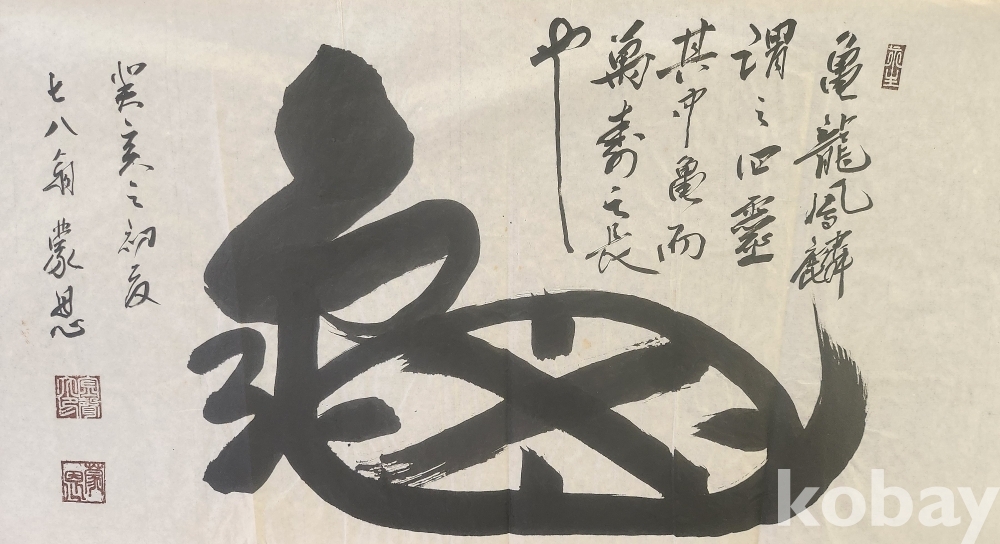 龜
龜龍鳳麟
謂之四靈
其中龜而
萬壽之長
也
癸亥之初夏
七八翁 蒙恩
蒙恩
kobay